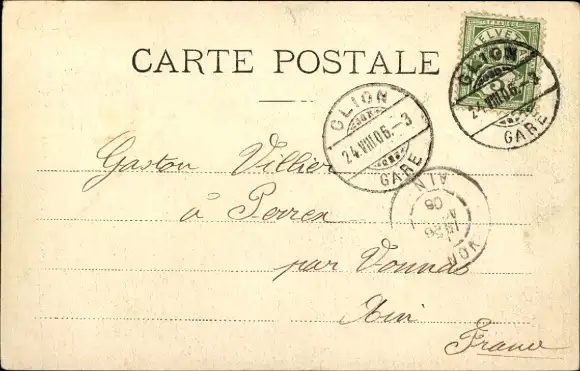 CARTE POSTALE
HELVETIA
5
GLION
24.VIII.06.-3
GARE
GLION
24.VIII.06.-3
GARE
Gaston Villier
à Perrex
par Vonnas
Ain
France
AIN
06